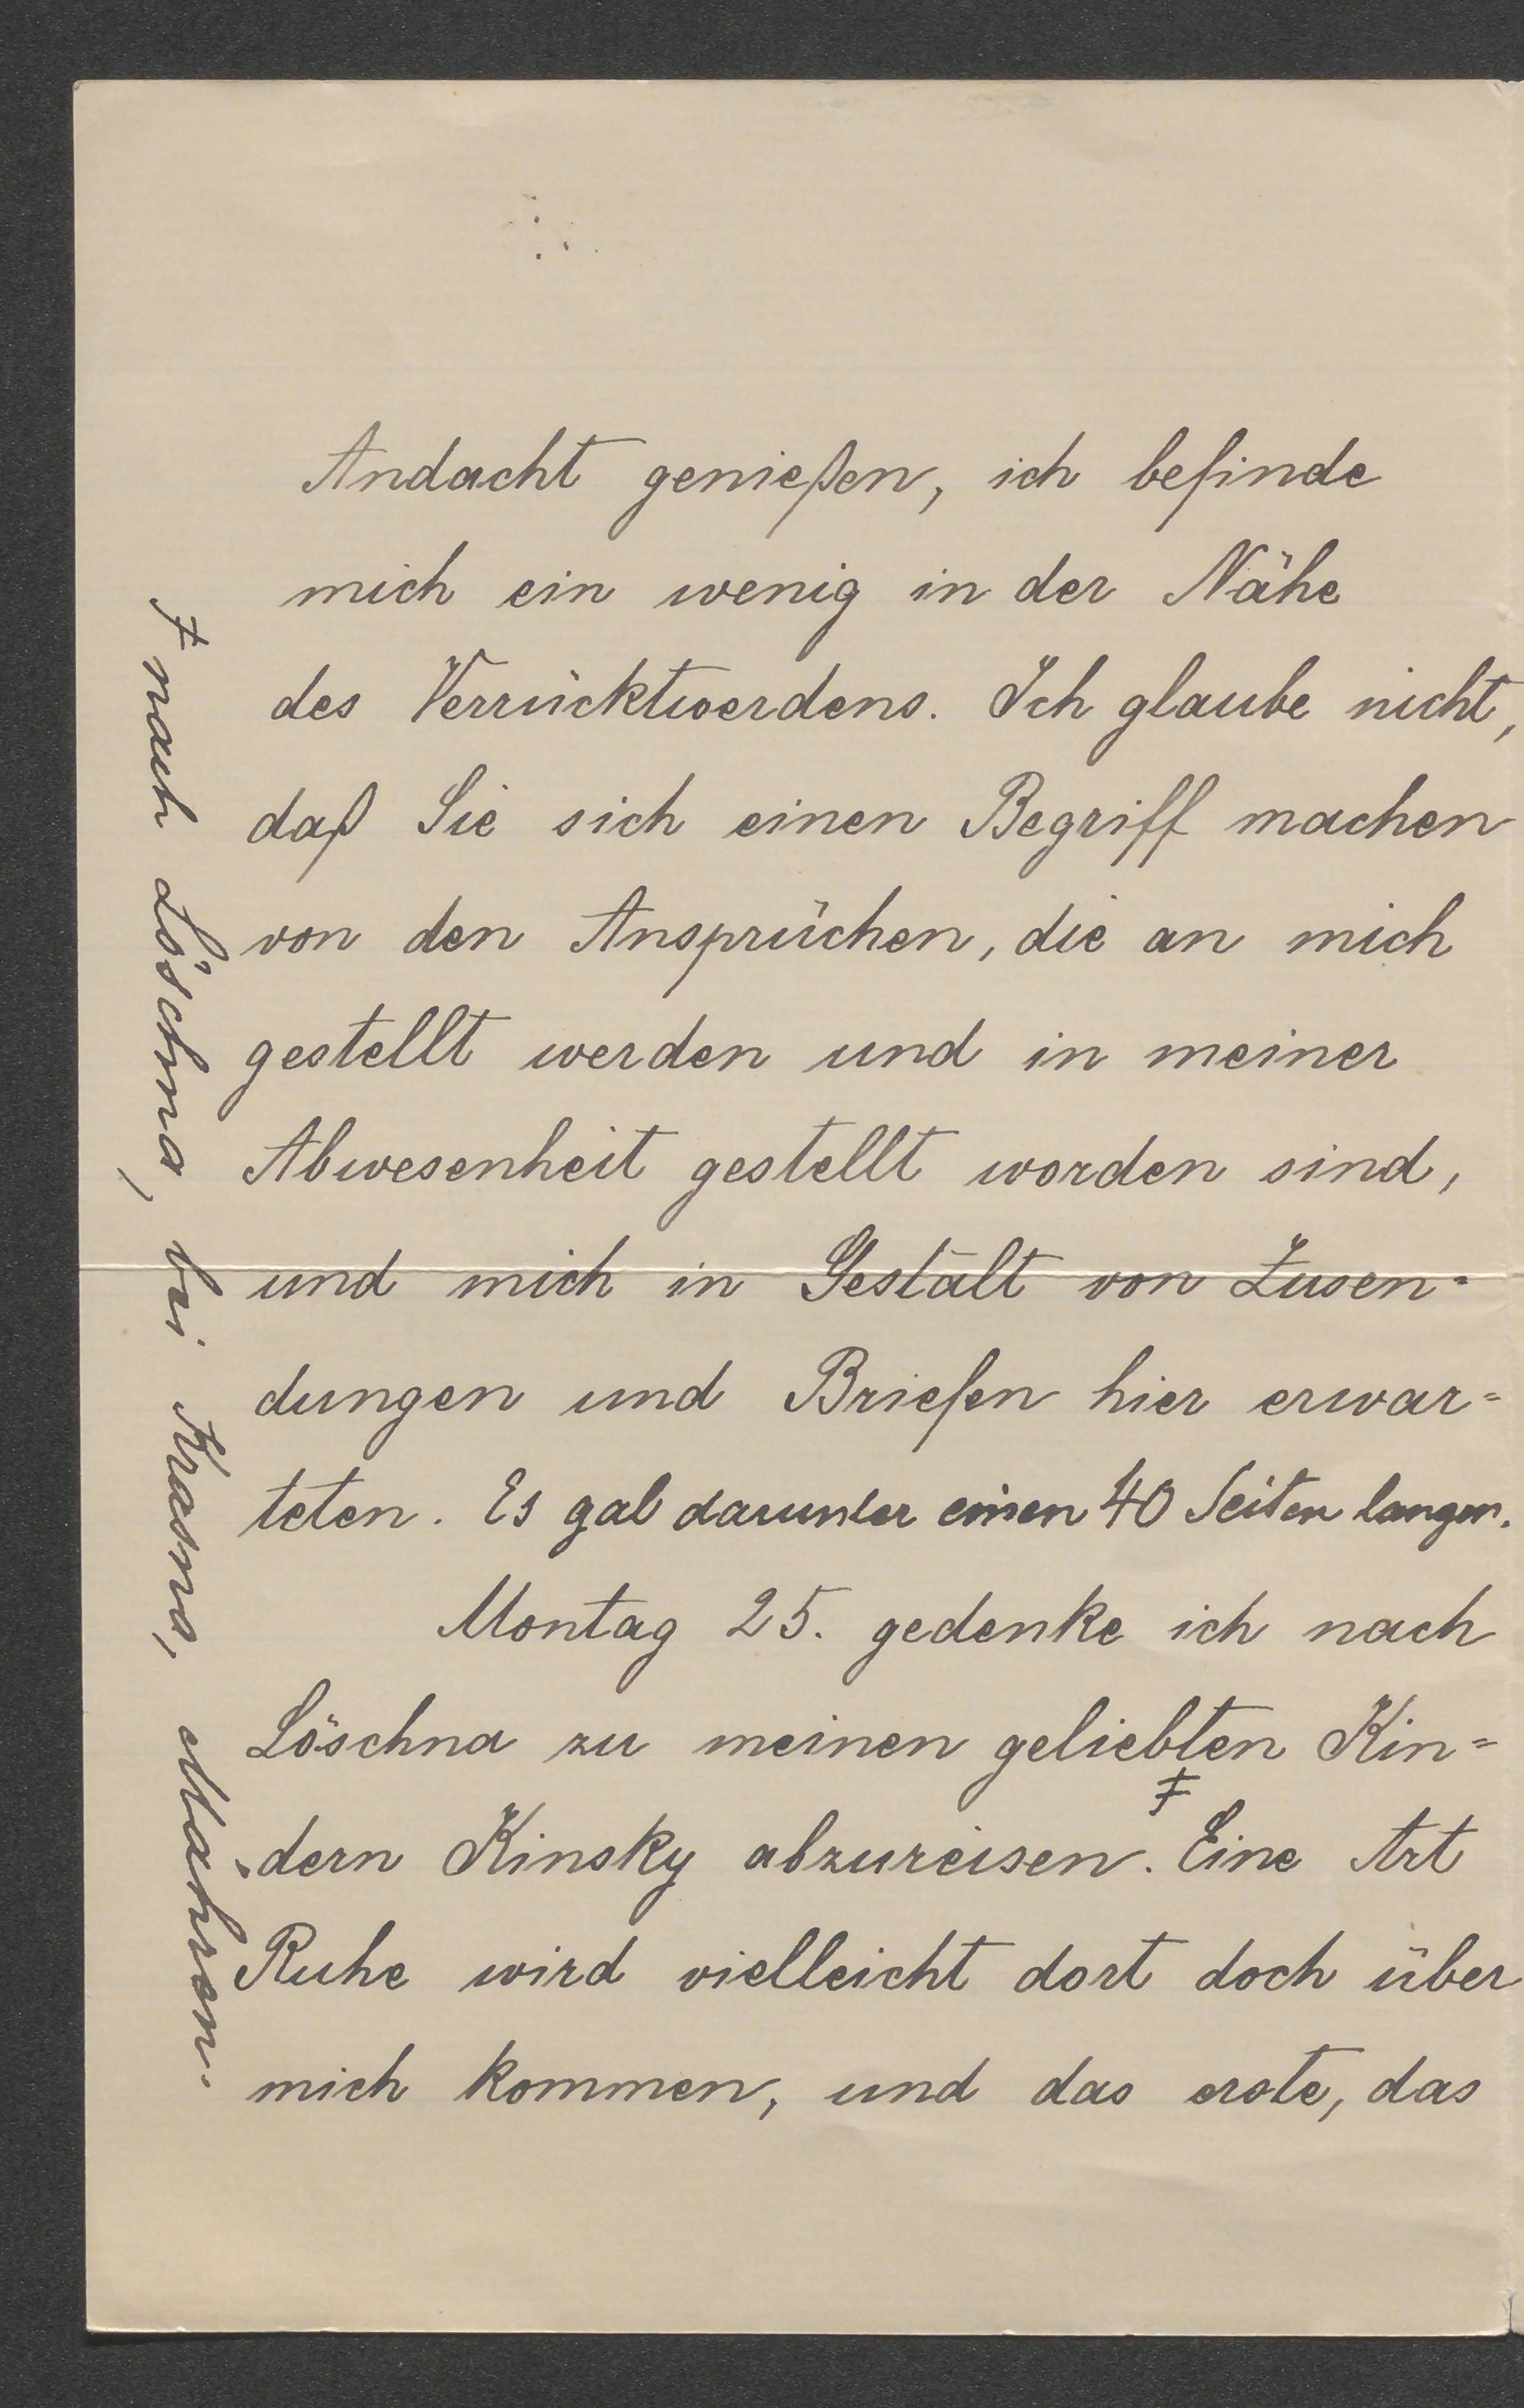 Andacht genießen, ich befinde
mich ein wenig in der Nähe
des Verrücktwerdens. Ich glaube nicht,
daß Sie sich einen Begriff machen
von den Ansprüchen, die an mich
gestellt werden und in meiner
Abwesenheit gestellt worden sind,
und mich in Gestalt von Zusen-
dungen und Briefen hier erwar=
teten. Es gab darunter einen 40 Seiten langen.
Montag 25. gedenke ich nach
Löschna zu meinen geliebten Kin=
dern Kinsky abzureisen. ‡ Eine Art
Ruhe wird vielleicht dort doch über
mich kommen, und das erste, das
‡ nach Löschna, bei Krasna, Mähren.